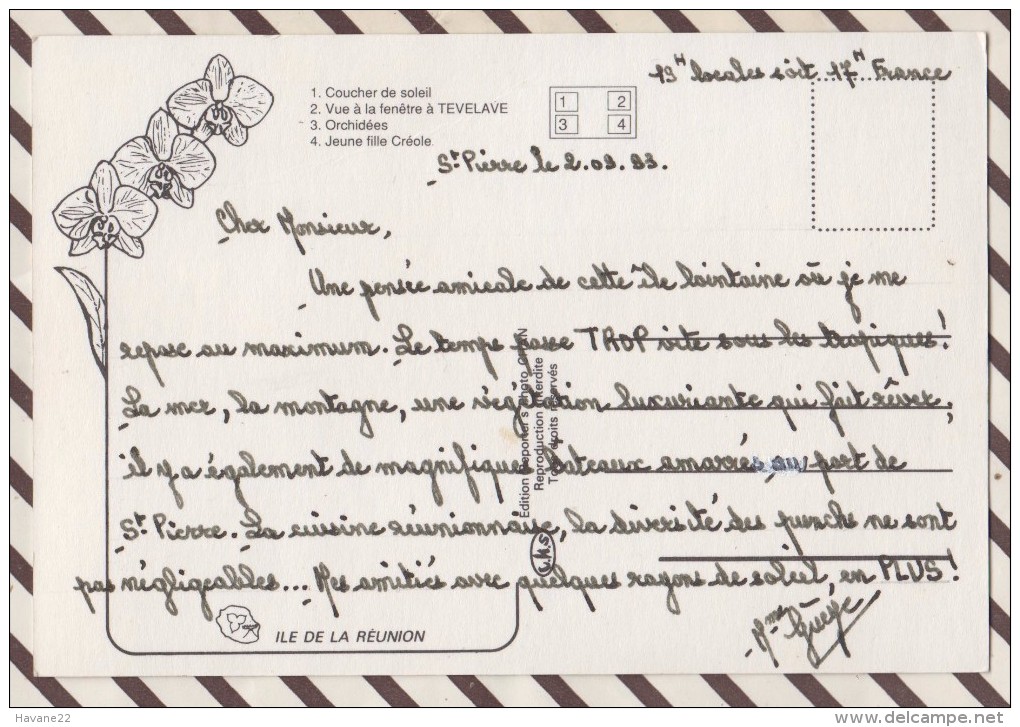 19H locales soit 17H France
1. Coucher de soleil
2. Vue à la fenêtre à TEVELAVE
3. Orchidées
4. Jeune fille Créole.
1 2
3 4
St Pierre le 2.09.93.
Cher Monsieur,
Une pensée amicale de cette île lointaine où je me
repose au maximum. Le temps passe TROP vite sous les tropiques!
La mer, la montagne, une végétation luxuriante qui fait rêver,
il y a également de magnifiques bateaux amarrés au port de
St Pierre. La cuisine réunionnaise, la diversité des punchs ne sont
pas négligeables... Mes amitiés avec quelques rayons de soleil, en PLUS!
Mme
Édition Reporter's Photo
Reproduction interdite
Tous droits réservés
ILE DE LA RÉUNION
Havane22
www.delcampe.net